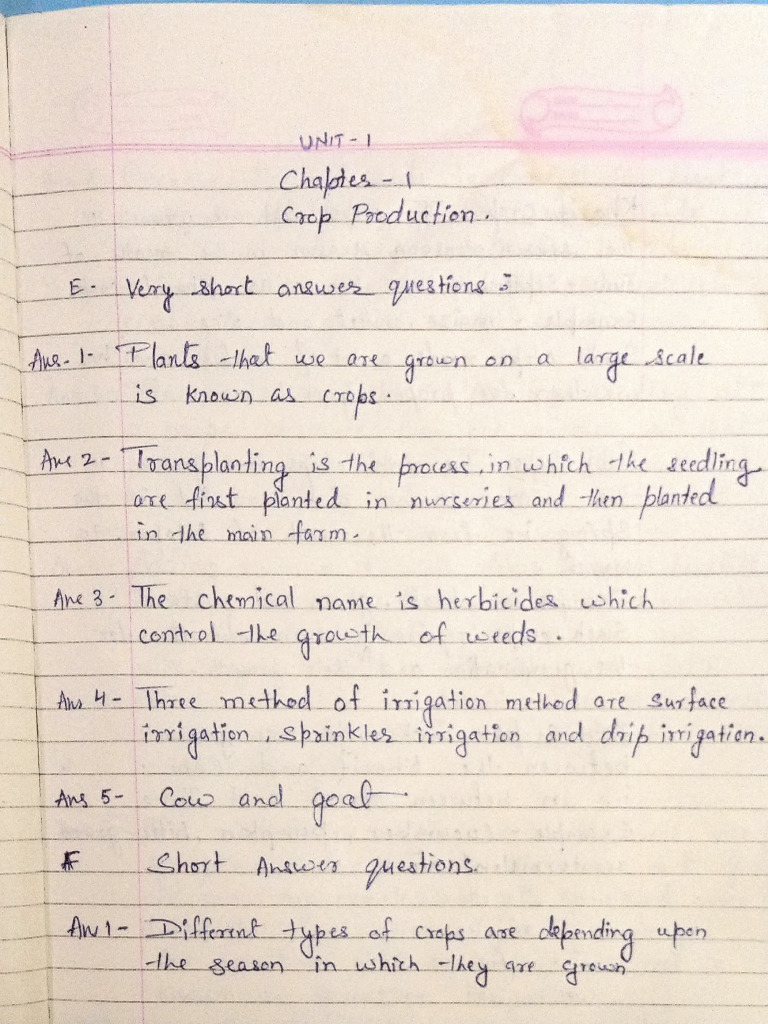 UNIT - 1
Chapter - 1
Crop Production.
E - Very short answer questions :-
Ans - 1 - Plants that we are grown on a large scale
is known as crops.
Ans 2 - Transplanting is the process, in which the seedling
are first planted in nurseries and then planted
in the main farm.
Ans 3 - The chemical name is herbicides which
control the growth of weeds.
Ans 4 - Three method of irrigation method are surface
irrigation, sprinkler irrigation and drip irrigation.
Ans 5 - Cow and goat
F Short Answer questions.
An 1 - Different types of crops are depending upon
the season in which they are grown